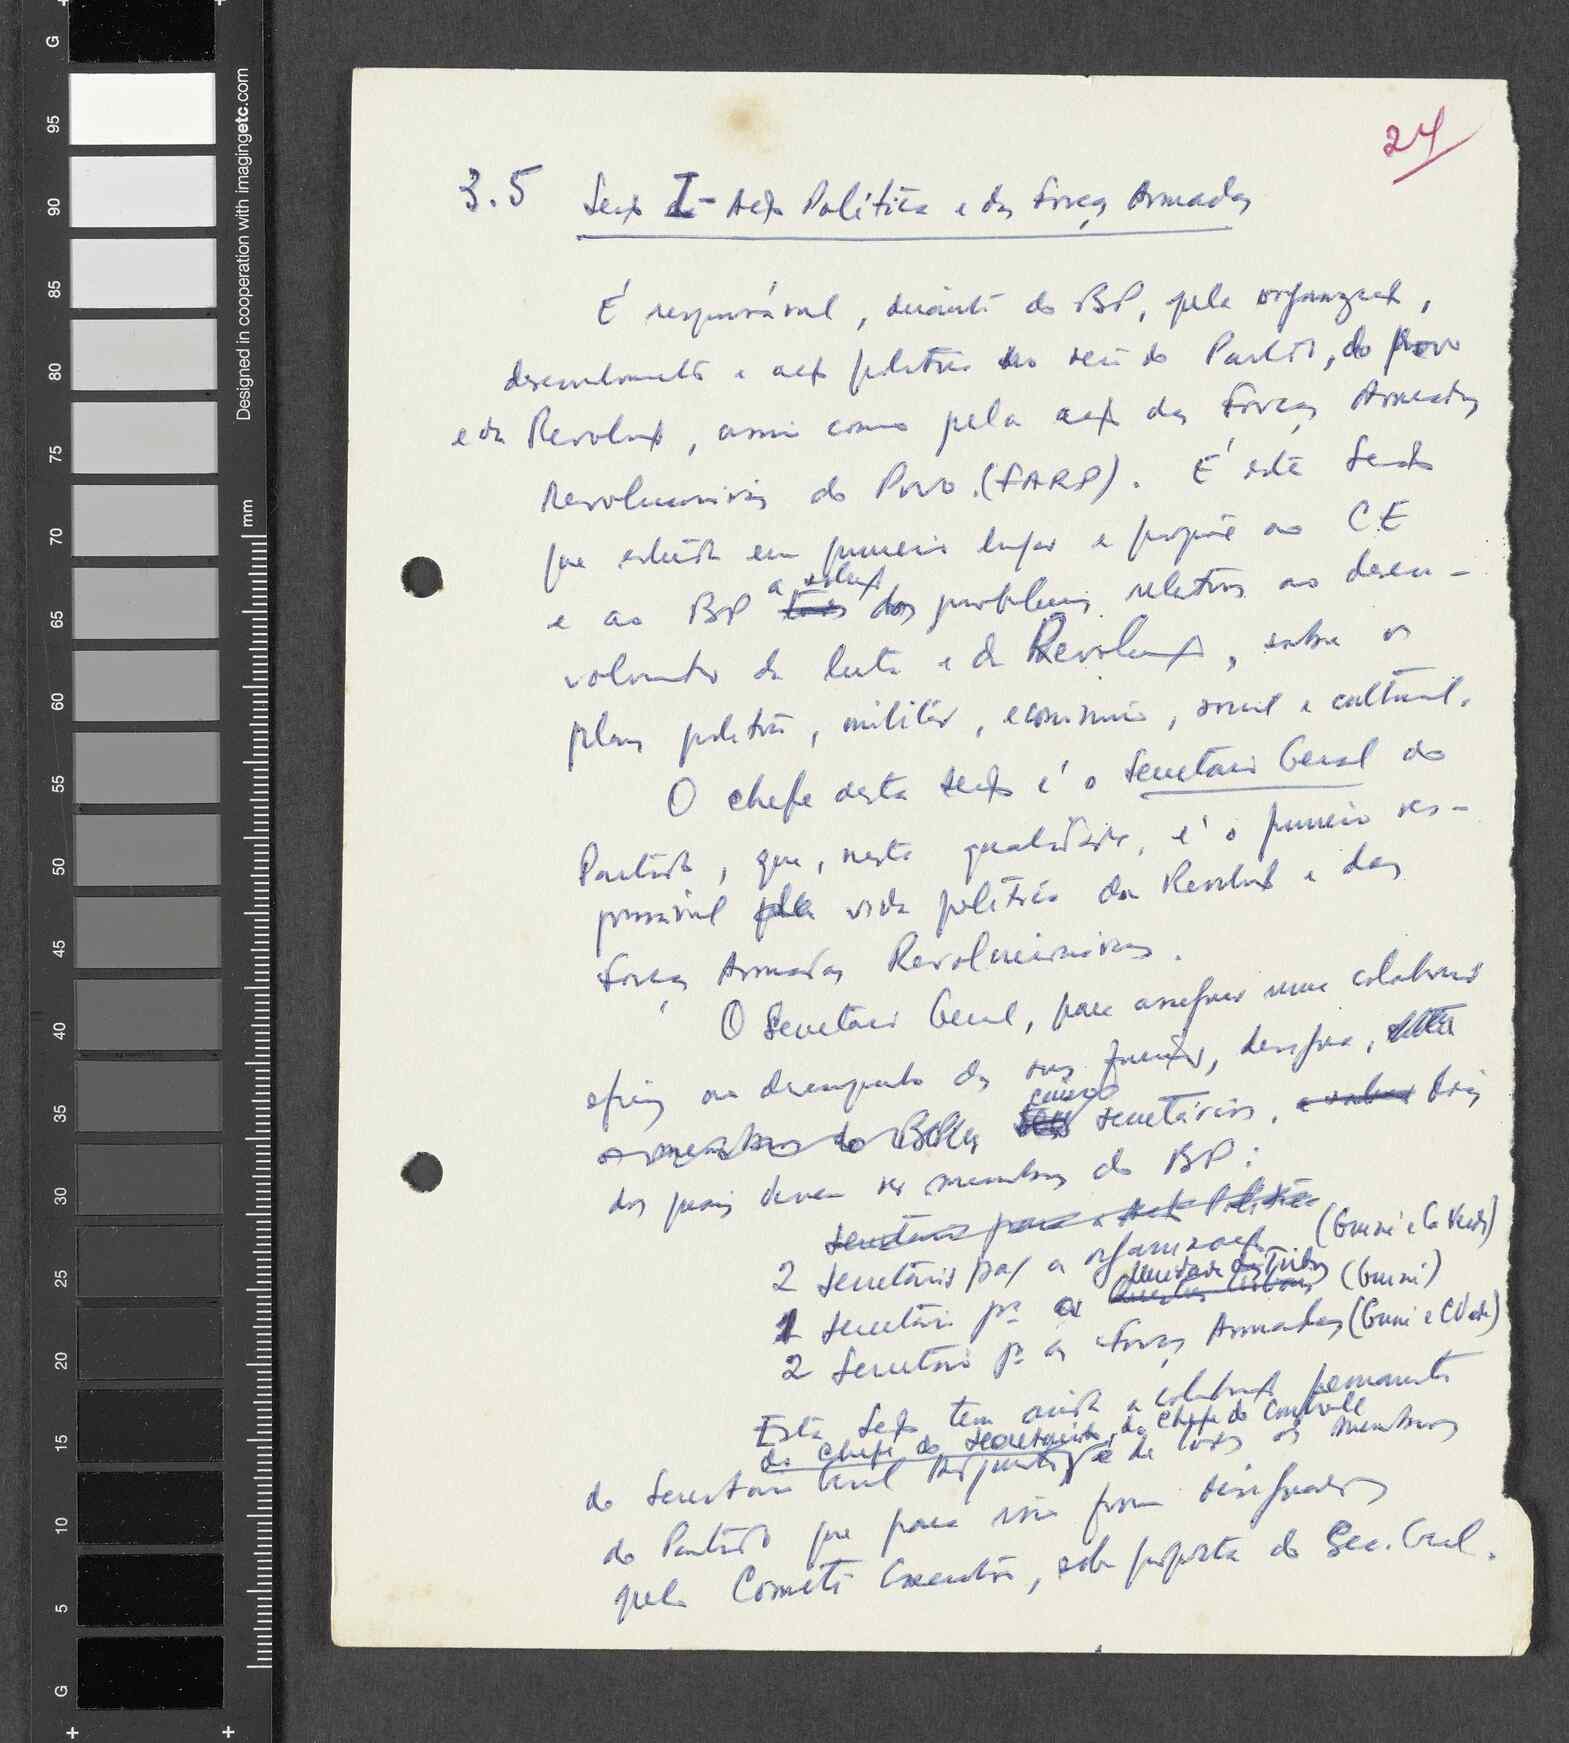 24
3.5 Secção I - Acção Política e das Forças Armadas
É responsável, diante do BP, pela organização,
desenvolvimento e acção política no seio do Partido, do povo
e da Revolução, assim como pela acção das Forças Armadas
Revolucionárias do Povo (FARP). É esta Secção
que estuda em primeiro lugar e propõe ao CE
e ao BP a solução dos problemas relativos ao desen-
volvimento da luta e da Revolução, sobre os
planos político, militar, económico, social e cultural.
O chefe desta secção é o Secretário Geral do
Partido, que, nesta qualidade, é o primeiro res-
ponsável pela vida política da Revolução e das
Forças Armadas Revolucionárias.
O Secretário Geral, para assegurar uma colaboração
eficaz no desempenho das suas funções, designa,
cinco secretários, dois
dos quais devem ser membros do BP:
Secretário para a Acção Política
2 Secretários para a organização (Guiné e Co Verde)
1 Secretário pa (Guiné)
2 Secretário pa as Forças Armadas (Guiné e CVerde)
Esta Secção tem ainda a colaboração permanente
do chefe do secretariado, do chefe do Controle
do Secretário Geral e de todos os membros
do Partido que para isso forem designados
pelo Comité Executivo, sob proposta do Sec. Geral.
Designed in cooperation with imagingetc.com
mm
G
95
90
85
80
75
70
65
60
55
50
45
40
35
30
25
20
15
10
5
G